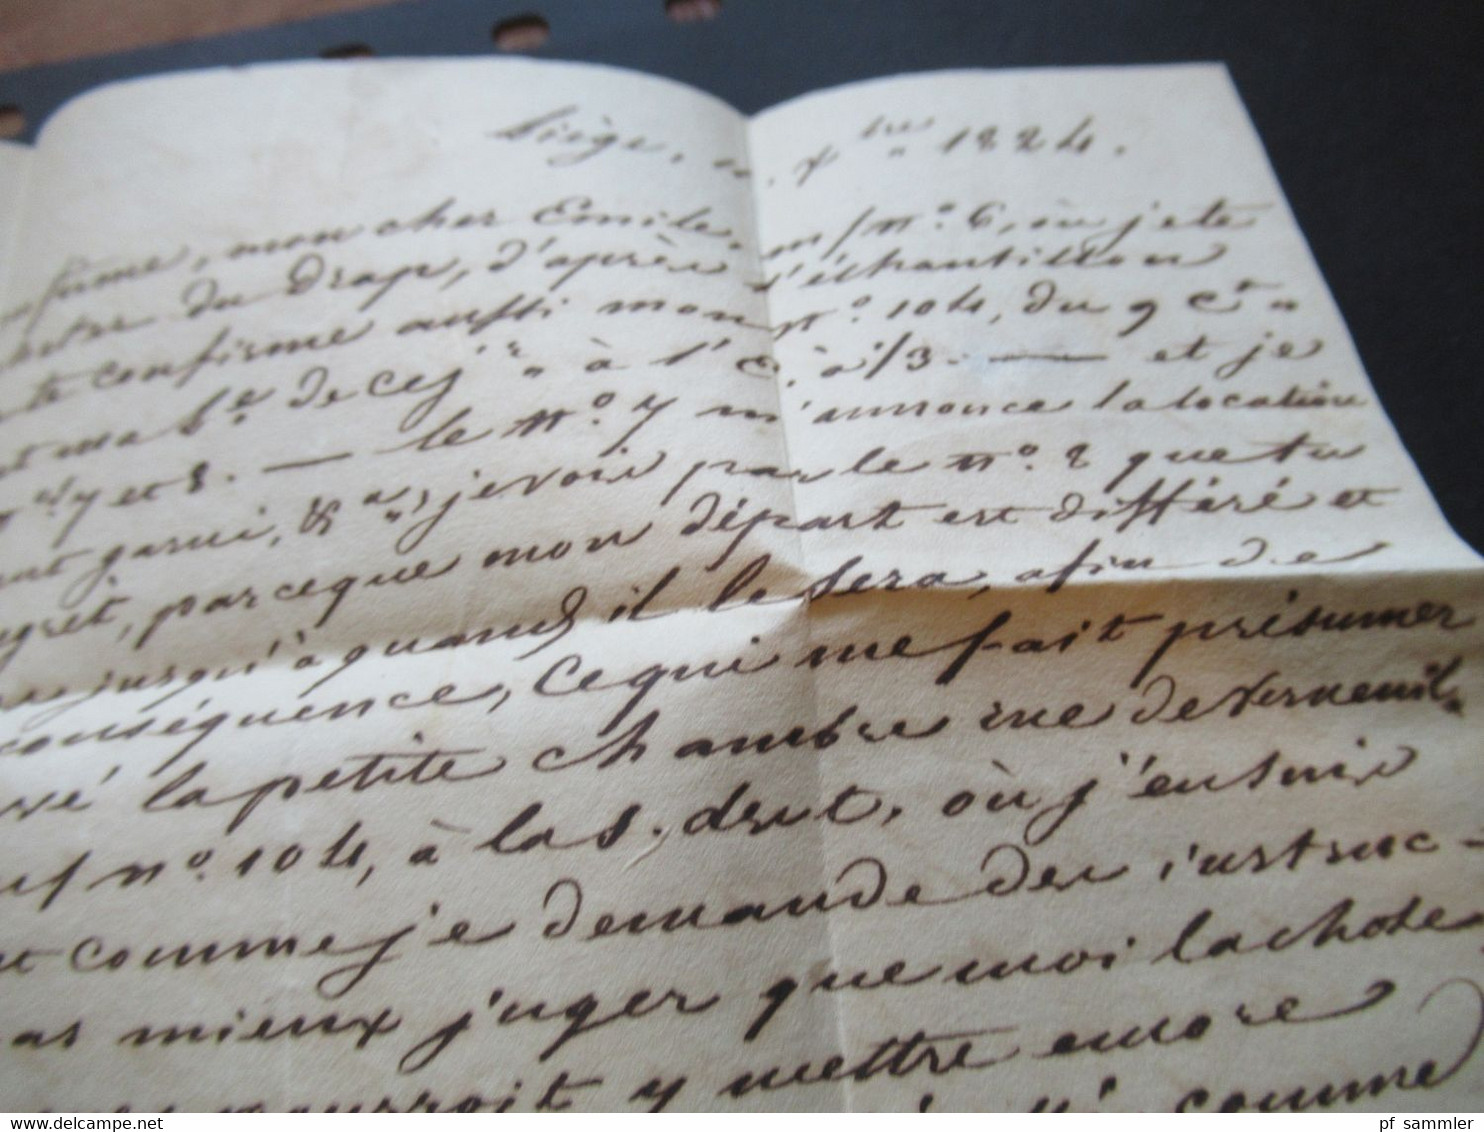 Liège, 10. xbre „ 1824.
firme, mon cher Emile, m/ n.° 6, où je te
du drap, d'après l'échantillon
te confirme aussi mon n.° 104, du 9 Ct „
et ma de ce jr „ à l' à 1/3. — et je
7 et 8. — le n.° 7 m'annonce la location
garni, &a „, je vois par le n.° 8 que tu
regret, parceque mon départ est différé et
jusqu'à quand il le sera, afin de
conséquence, ce qui me fait présumer
la petite chambre rue de Verneuil.
n.° 104, à la s. drt, où j'en suis
et comme je demande des instruc-
as mieux juger que moi la chose
pourroit y mettre encore
comme
pf_sammler